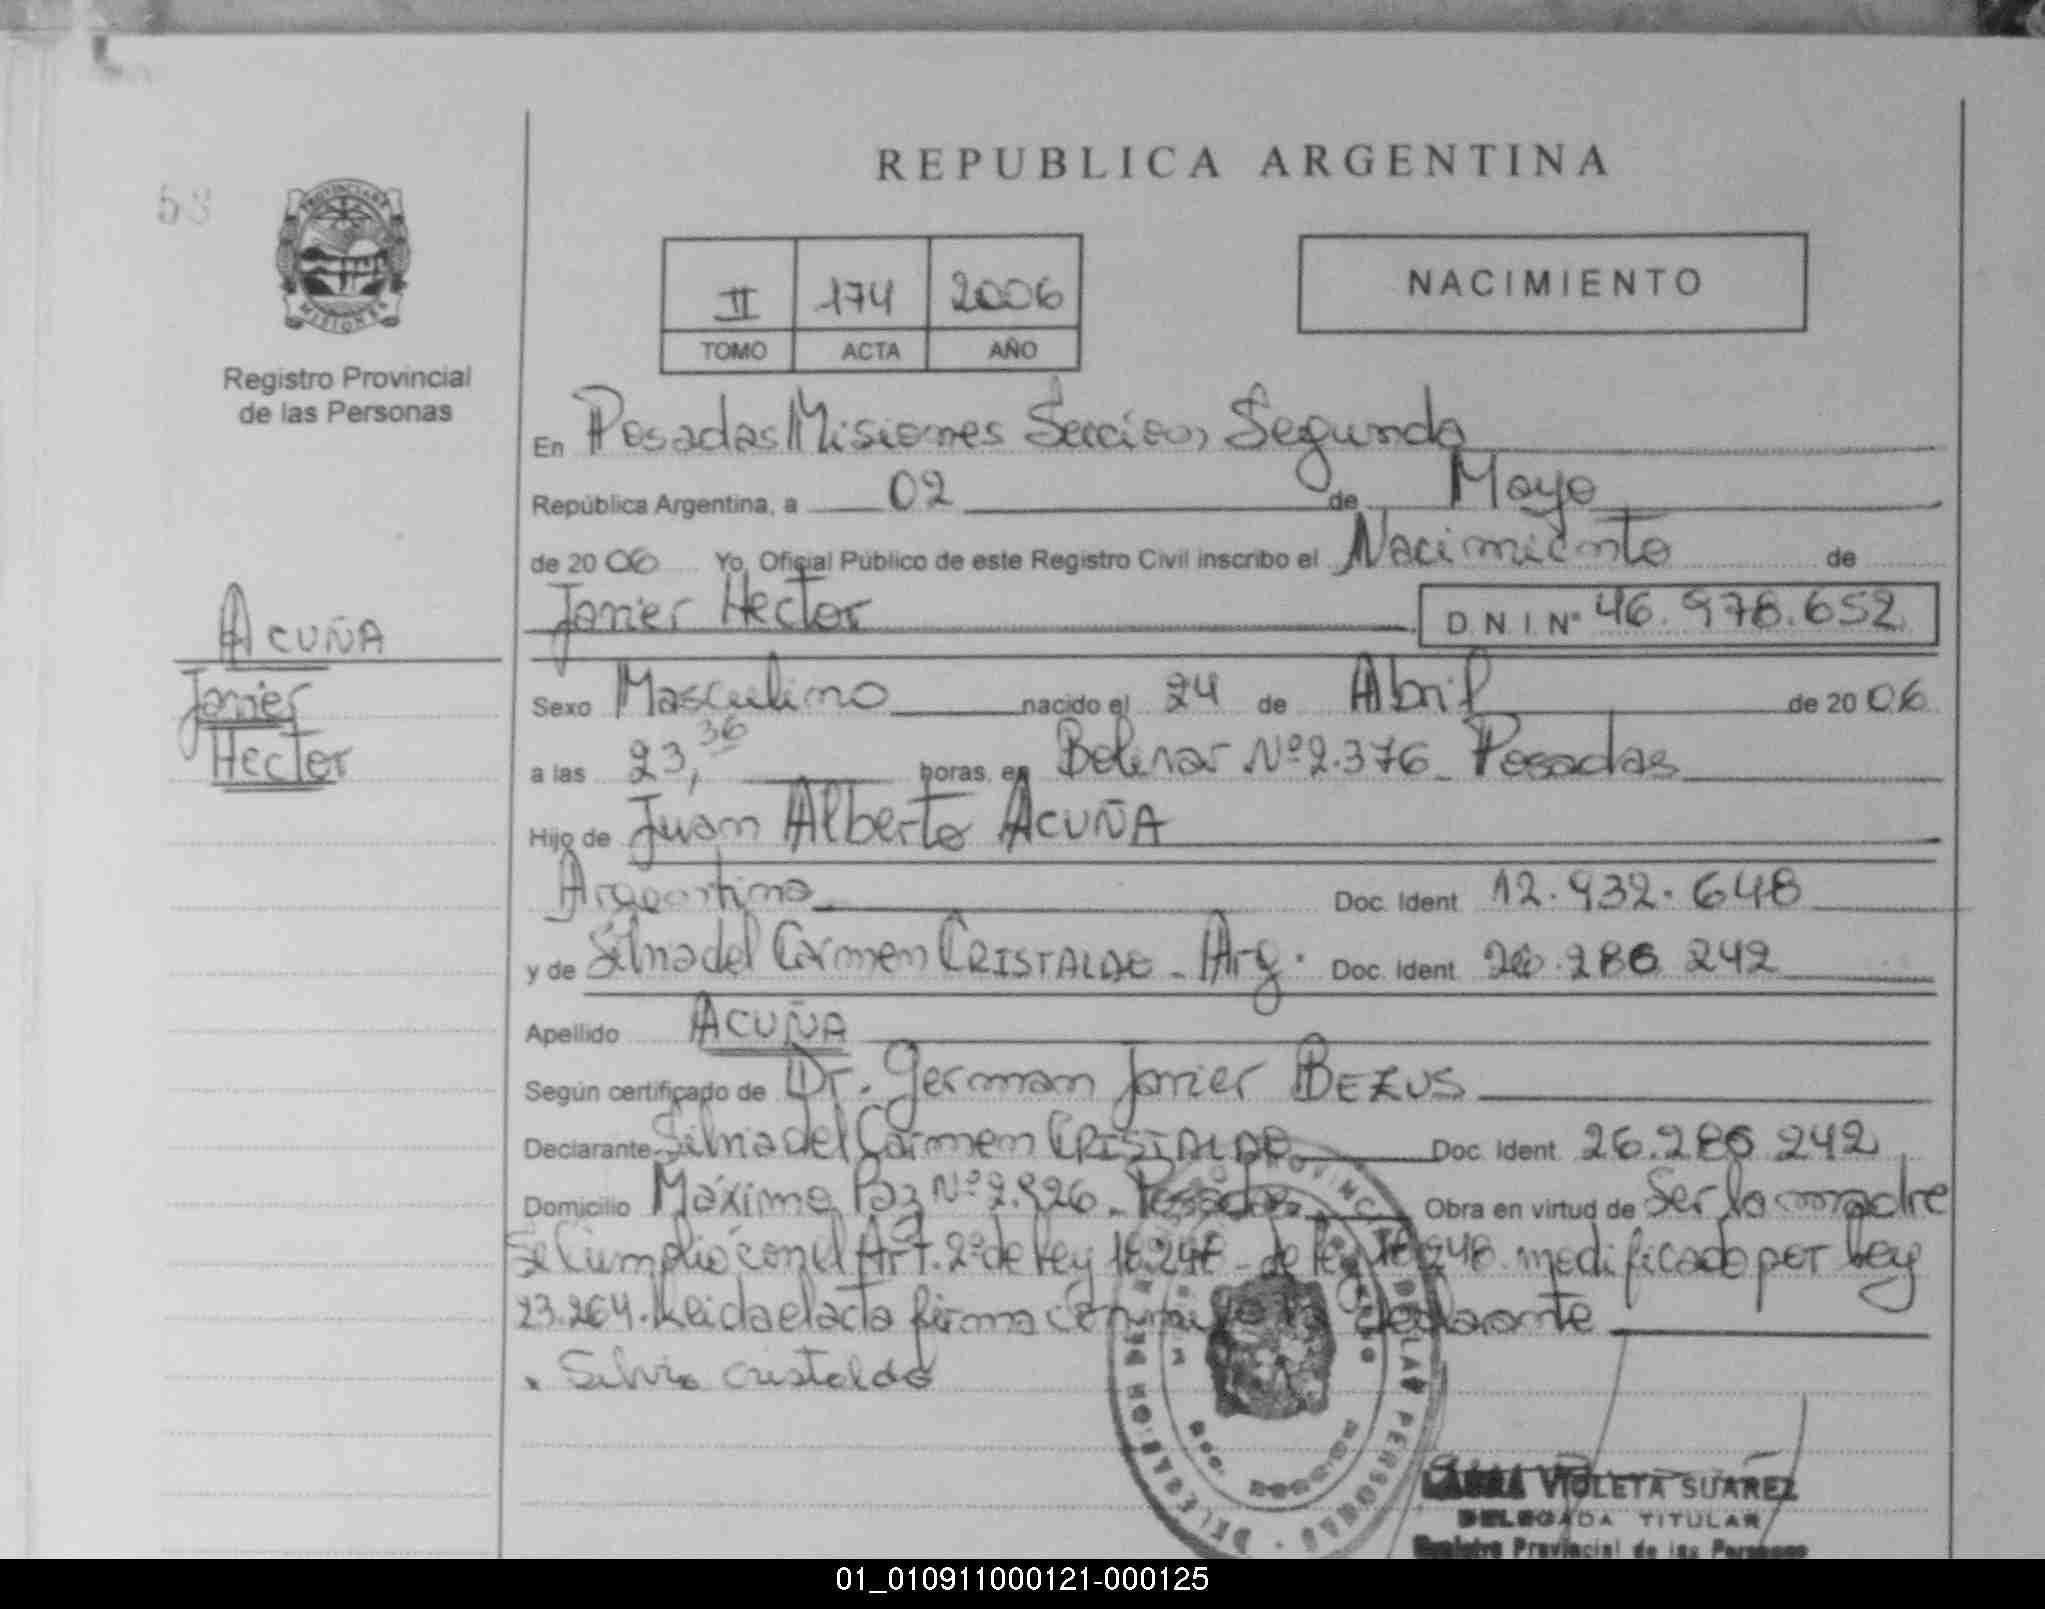 REPUBLICA ARGENTINA
53
PROVINCIA DE
MISIONES
Registro Provincial
de las Personas
II 174 2006
TOMO ACTA AÑO
NACIMIENTO
En Posadas Misiones Seccion Segunda
República Argentina, a 02 de Mayo
de 2006 Yo, Oficial Público de este Registro Civil inscribo el Nacimiento de
Javier Hector D.N.I. Nº 46.978.652
ACUÑA
Javier
Hector
Sexo Masculino nacido el 24 de Abril de 2006
a las 23,36 horas, en Bolivar Nº 2.376 - Posadas
Hijo de Juan Alberto ACUÑA
Argentino Doc. Ident. 12.932.648
y de Silvia del Carmen CRISTALDO - Arg. Doc. Ident. 26.286.242
Apellido ACUÑA
Según certificado de Dr. German Javier BEZUS
Declarante Silvia del Carmen CRISTALDO Doc. Ident. 26.286.242
Domicilio Máximo Paz Nº 2.826 - Posadas Obra en virtud de Ser la madre
Se Cumplio con el Art. 2º de Ley 18.248 - de Ley 18.248 modificado por Ley
23.264. Leida el acta firma conmigo la declarante
Silvia Cristaldo
VIOLETA SUAREZ
DELEGADA TITULAR
Registro Provincial de las Personas
01_010911000121-000125